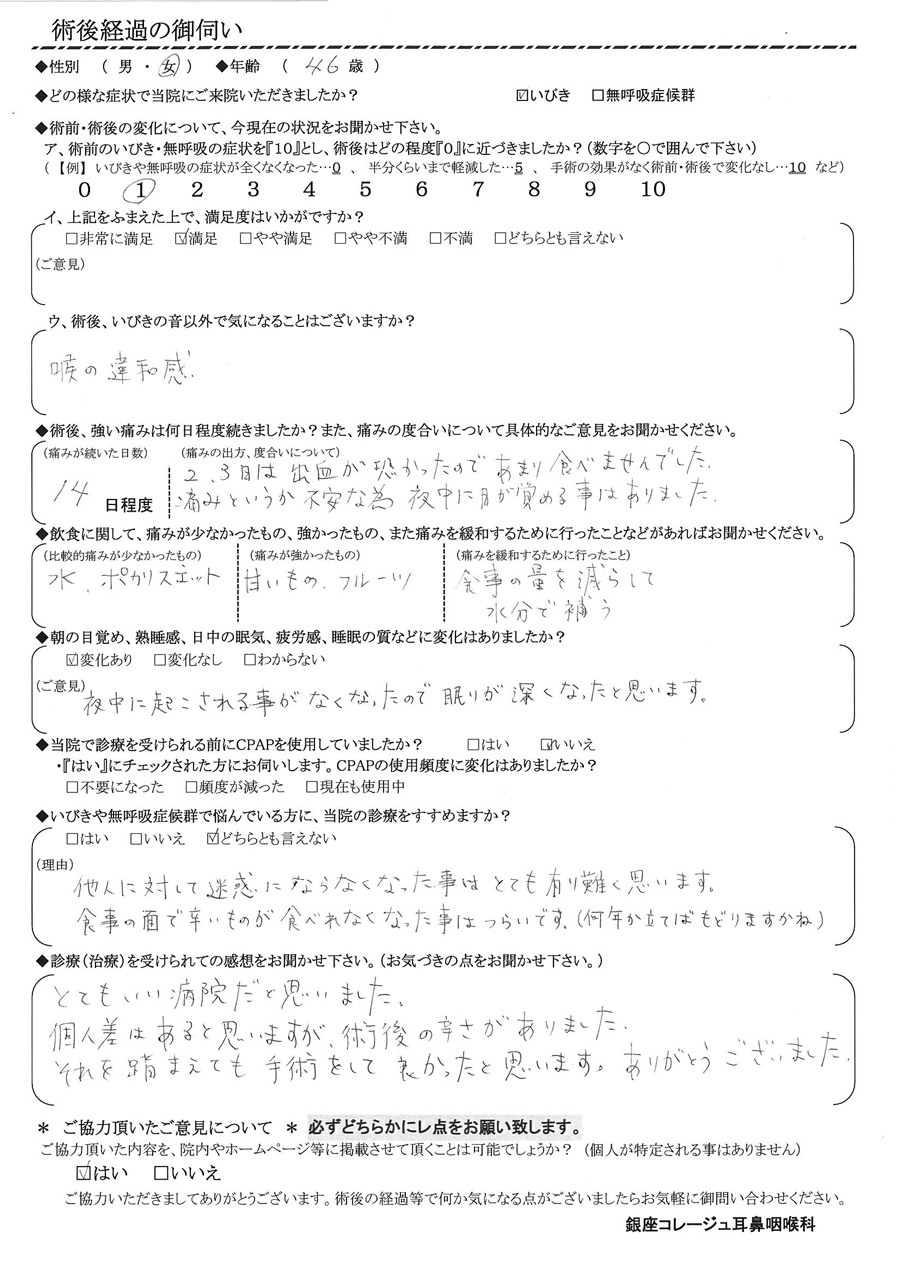 術後経過の御伺い
◆性別 ( 男 ・ 女 ) ◆年齢 ( 46 歳 )
◆どの様な症状で当院にご来院いただきましたか? ☑いびき □無呼吸症候群
◆術前・術後の変化について、今現在の状況をお聞かせ下さい。
ア、術前のいびき・無呼吸の症状を『10』とし、術後はどの程度『0』に近づきましたか?(数字を○で囲んで下さい)
(【例】 いびきや無呼吸の症状が全くなくなった…0 、 半分くらいまで軽減した…5 、 手術の効果がなく術前・術後で変化なし…10 など)
0 1 2 3 4 5 6 7 8 9 10
イ、上記をふまえた上で、満足度はいかがですか?
□非常に満足 ☑満足 □やや満足 □やや不満 □不満 □どちらとも言えない
(ご意見)
ウ、術後、いびきの音以外で気になることはございますか?
喉の違和感.
◆術後、強い痛みは何日程度続きましたか?また、痛みの度合いについて具体的なご意見をお聞かせください。
(痛みが続いた日数) (痛みの出方、度合いについて)
2、3日は出血が恐かったのであまり食べませんでした.
14 日程度 痛みというか不安な為夜中に目が覚める事はありました.
◆飲食に関して、痛みが少なかったもの、強かったもの、また痛みを緩和するために行ったことなどがあればお聞かせください。
(比較的痛みが少なかったもの) (痛みが強かったもの) (痛みを緩和するために行ったこと)
水、ポカリスエット 甘いもの、フルーツ 食事の量を減らして
水分で補う
◆朝の目覚め、熟睡感、日中の眠気、疲労感、睡眠の質などに変化はありましたか?
☑変化あり □変化なし □わからない
(ご意見)
夜中に起こされる事がなくなったので眠りが深くなったと思います。
◆当院で診療を受けられる前にCPAPを使用していましたか? □はい ☑いいえ
・『はい』にチェックされた方にお伺いします。CPAPの使用頻度に変化はありましたか?
□不要になった □頻度が減った □現在も使用中
◆いびきや無呼吸症候群で悩んでいる方に、当院の診療をすすめますか?
□はい □いいえ ☑どちらとも言えない
(理由)
他人に対して迷惑にならなくなった事はとても有り難く思います。
食事の面で辛いものが食べれなくなった事はつらいです。(何年か立てばもどりますかね)
◆診療(治療)を受けられての感想をお聞かせ下さい。(お気づきの点をお聞かせ下さい。)
とてもいい病院だと思いました、
個人差はあると思いますが、術後の辛さがありました.
それを踏まえても手術をして良かったと思います。ありがとうございました.
* ご協力頂いたご意見について * 必ずどちらかにレ点をお願い致します。
ご協力頂いた内容を、院内やホームページ等に掲載させて頂くことは可能でしょうか? (個人が特定される事はありません)
☑はい □いいえ
ご協力いただきましてありがとうございます。術後の経過等で何か気になる点がございましたらお気軽に御問い合わせください。
銀座コレージュ耳鼻咽喉科